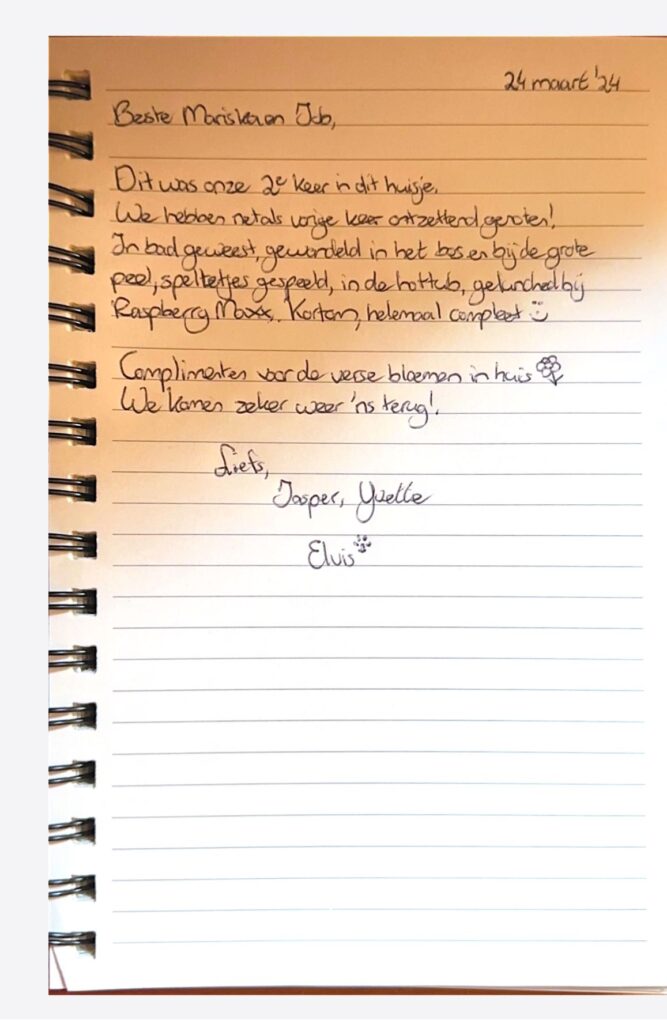 24 maart '24
Beste Mariska en Job,
Dit was onze 2e keer in dit huisje.
We hebben net als vorige keer ontzettend genoten!
In bad geweest, gewandeld in het bos en bij de grote
peel, spelletjes gespeeld, in de hottub, geluncht bij
Raspberry Maxx. Kortom, helemaal compleet :)
Complimenten voor de verse bloemen in huis
We komen zeker weer 'ns terug!
Liefs,
Jasper, Yvette
Elvis